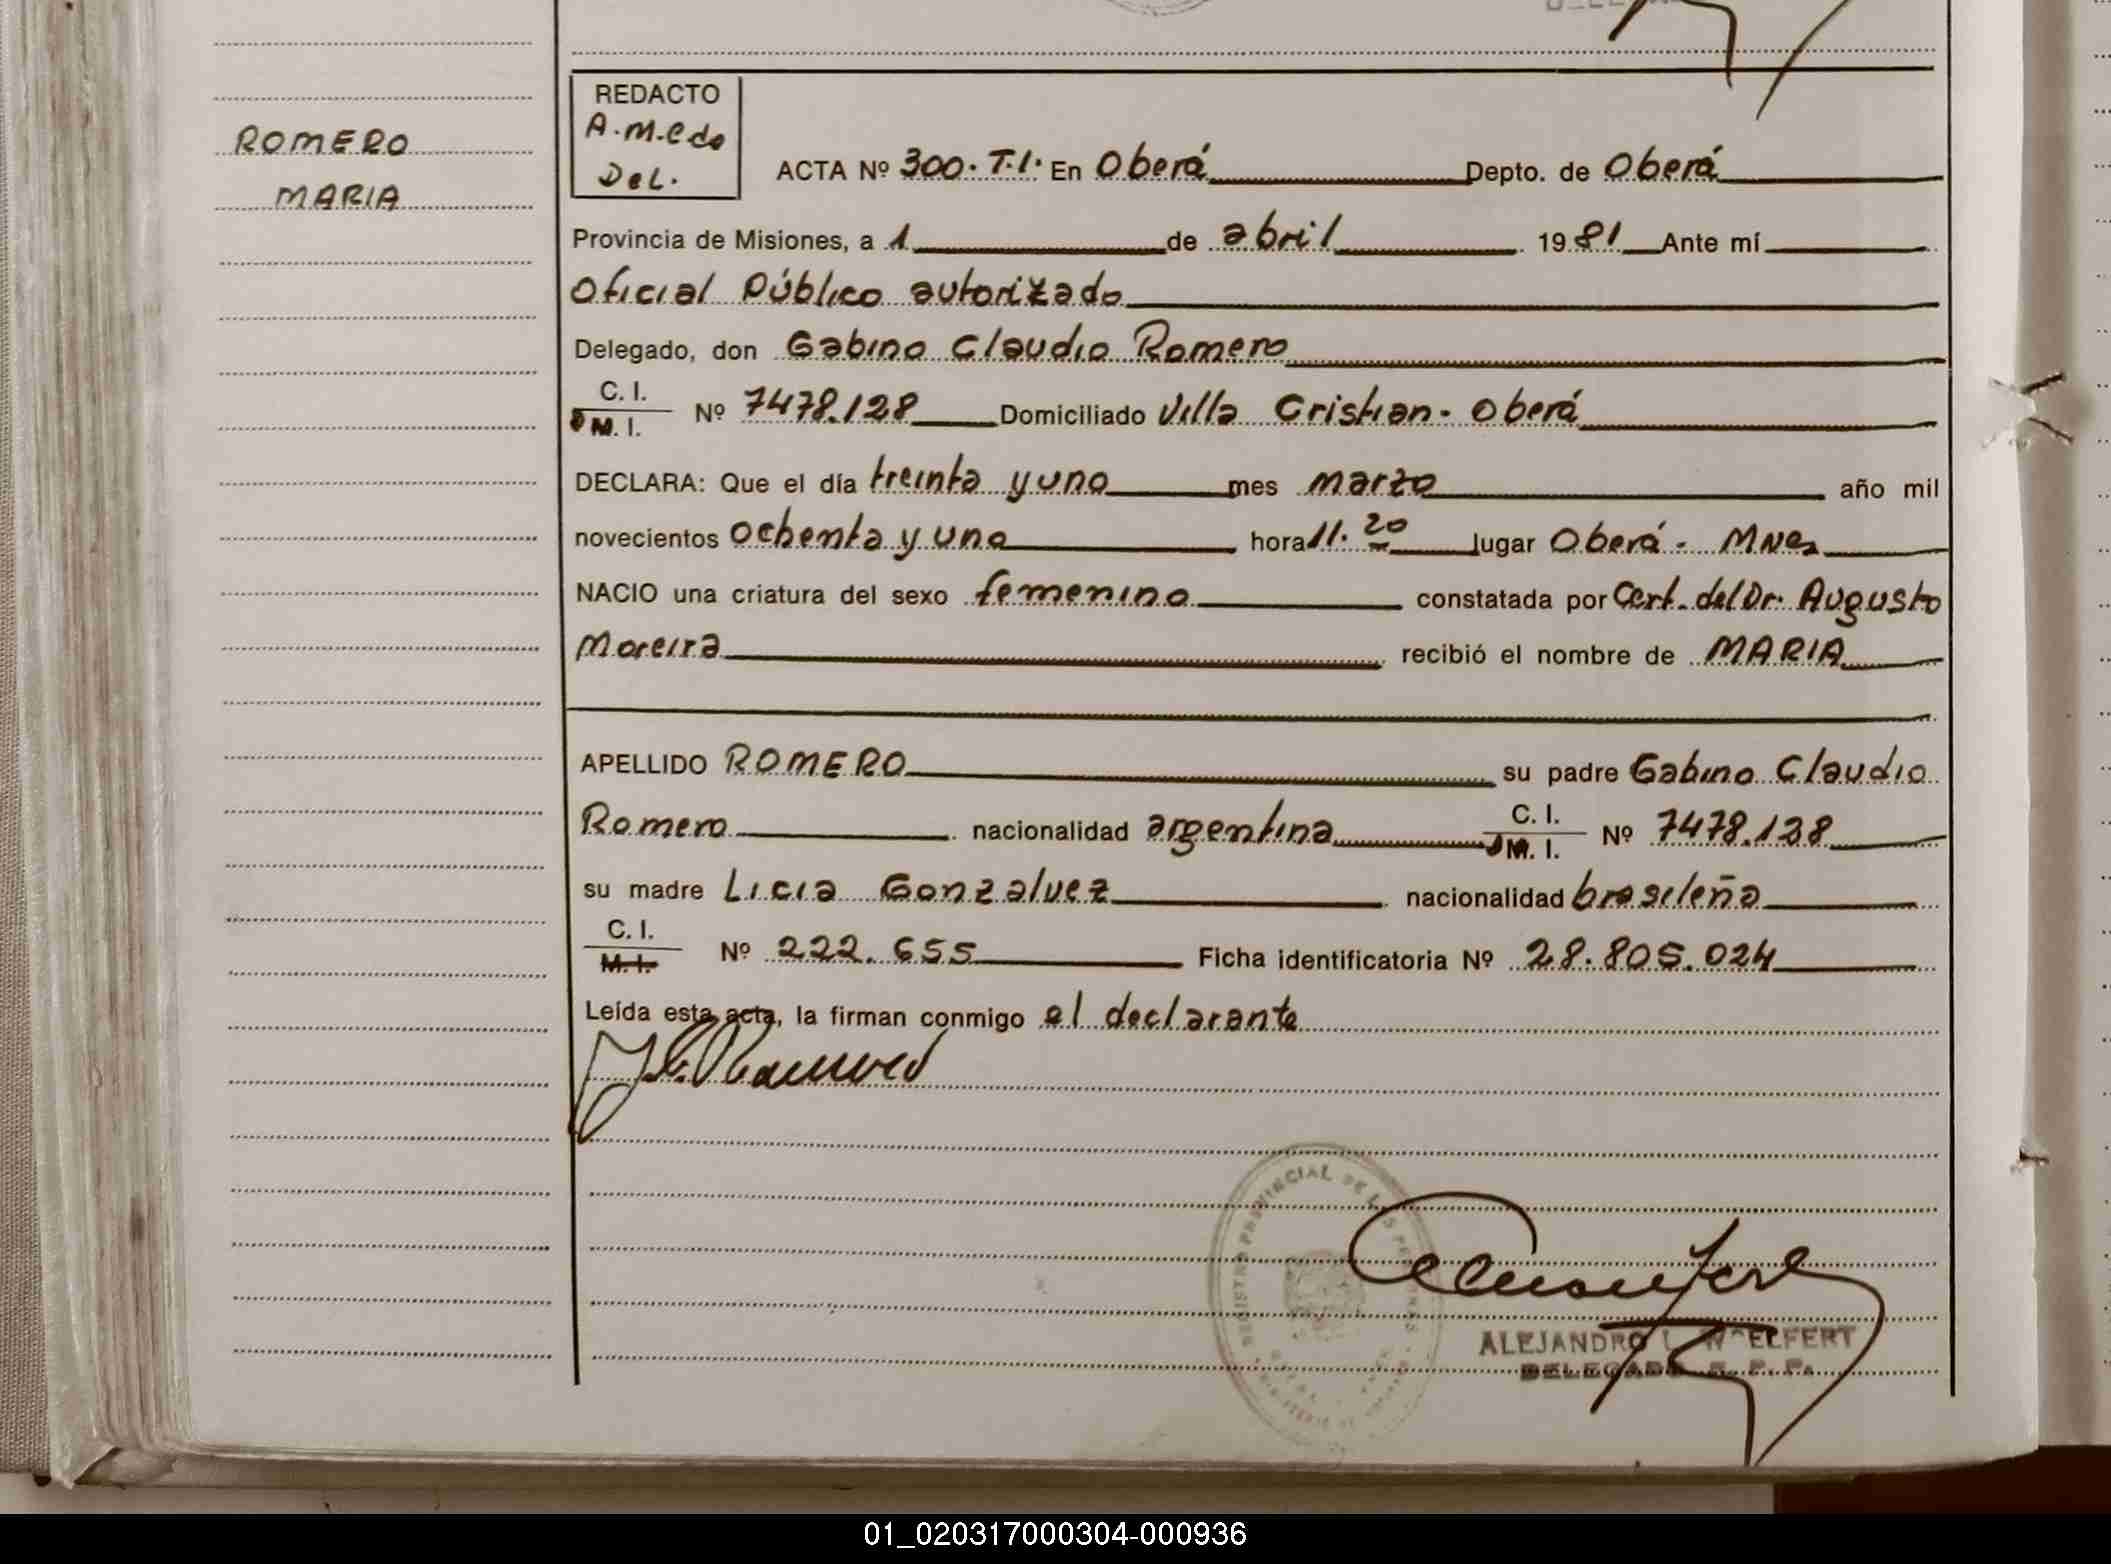 ROMERO
MARIA
REDACTO
A.M.C de
Del.
ACTA Nº 300. T.I. En Oberá Depto. de Oberá
Provincia de Misiones, a 1 de abril 1981 Ante mí
Oficial Público autorizado
Delegado, don Gabino Claudio Romero
C. I.
M. I. Nº 7478.128 Domiciliado Villa Cristian - Oberá
DECLARA: Que el día treinta y uno mes marzo año mil
novecientos ochenta y uno hora 11.20 lugar Oberá - Mnes
NACIO una criatura del sexo femenino constatada por Cert. del Dr. Augusto
Moreira recibió el nombre de MARIA
APELLIDO ROMERO su padre Gabino Claudio
Romero nacionalidad argentina C. I. M. I. Nº 7478.128
su madre Licia Gonzalvez nacionalidad brasileña
C. I.
M. I. Nº 222.655 Ficha identificatoria Nº 28.805.024
Leída esta acta, la firman conmigo el declarante
REGISTRO PROVINCIAL DE LAS PERSONAS
ALEJANDRO L. WOELFERT
DELEGADO R. P. P.
01_020317000304-000936